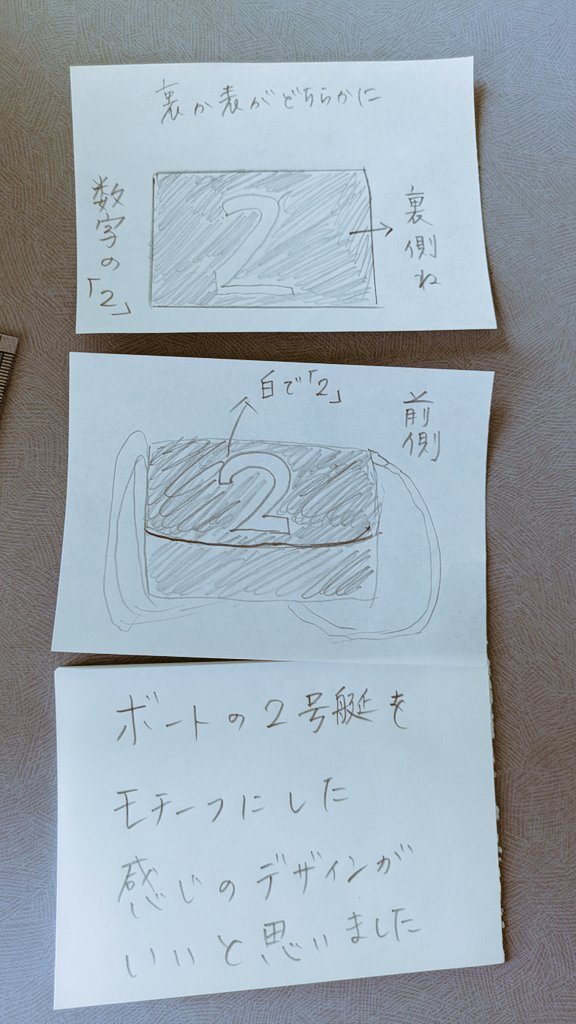 裏か表がどちらかに
数字の「2」
2
裏側ね
白で「2」
前側
2
ボートの2号艇を
モチーフにした
感じのデザインが
いいと思いました